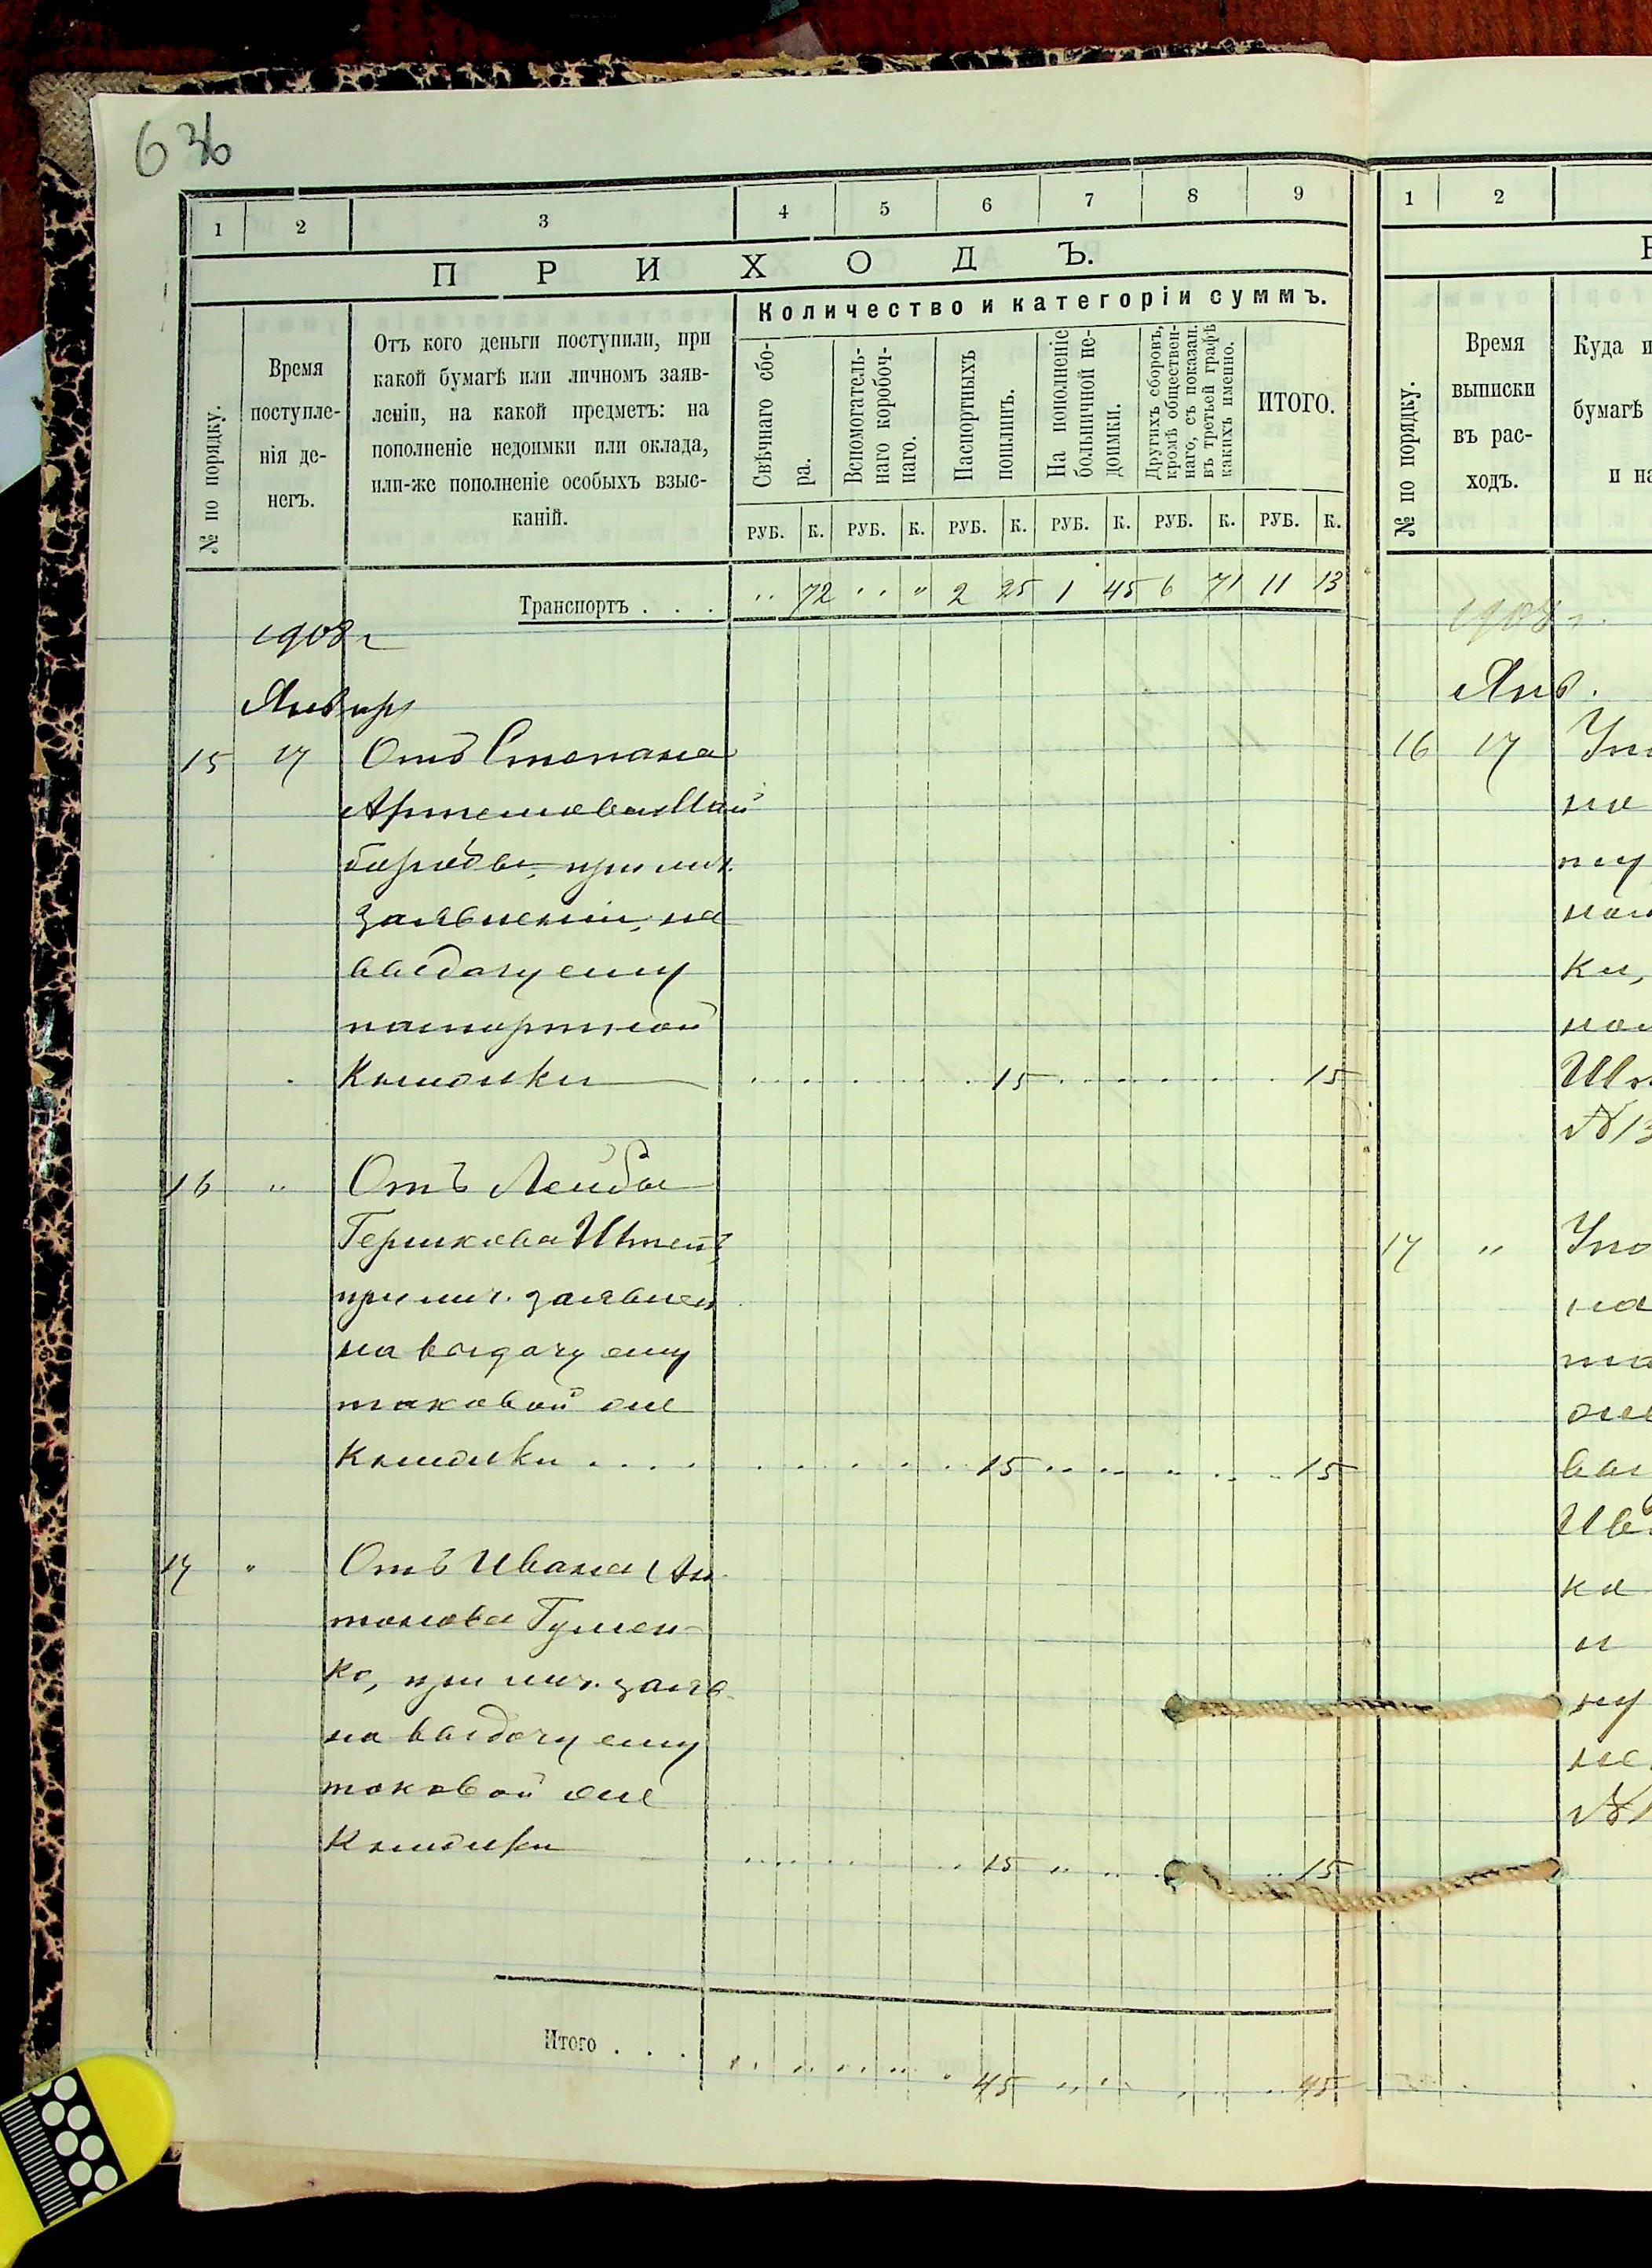 636
1 2 3 4 5 6 7 8 9
ПРИХОДЪ.
№ по порядку.
Время
поступле-
нія де-
негъ.
Отъ кого деньги поступили, при
какой бумагѣ или личномъ заяв-
леніи, на какой предметъ: на
пополненіе недоимки или оклада,
или-же пополненіе особыхъ взыс-
каній.
Количество и категоріи суммъ.
Свѣчнаго сбо-
ра.
Вспомогатель-
наго коробоч-
наго.
Паспортныхъ
пошлинъ.
На пополненіе
больничной не-
доимки.
Другихъ сборовъ,
кромѣ обществен-
наго, съ показан.
въ третьей графѣ
какихъ именно.
ИТОГО.
РУБ. К. РУБ. К. РУБ. К. РУБ. К. РУБ. К. РУБ. К.
Транспортъ . . . " 72 " " 2 25 1 45 6 71 11 13
1908 г
Январь
15 17 Отъ Степана
Артемова
бороды, при лич.
заявленіи, на
выдачу ему
паспортной
Книжки 15 15
16 " Отъ Лейбы
Гершкова Штейн,
при лич. заявлен
на выдачу ему
таковой же
Книжки . . . . 15 15
17 " Отъ Ивана Ан
тонова Гумен-
ко, при лич. заяв
на выдачу ему
таковой же
Книжки 15 15
Итого . . . 45 45
1 2
№ по порядку.
Время
выписки
въ рас-
ходъ.
Куда и
бумагѣ
и на
1908 г.
Янв.
16 17
но
ну
ки,
№ 13
17 "
на
ка
и
ну